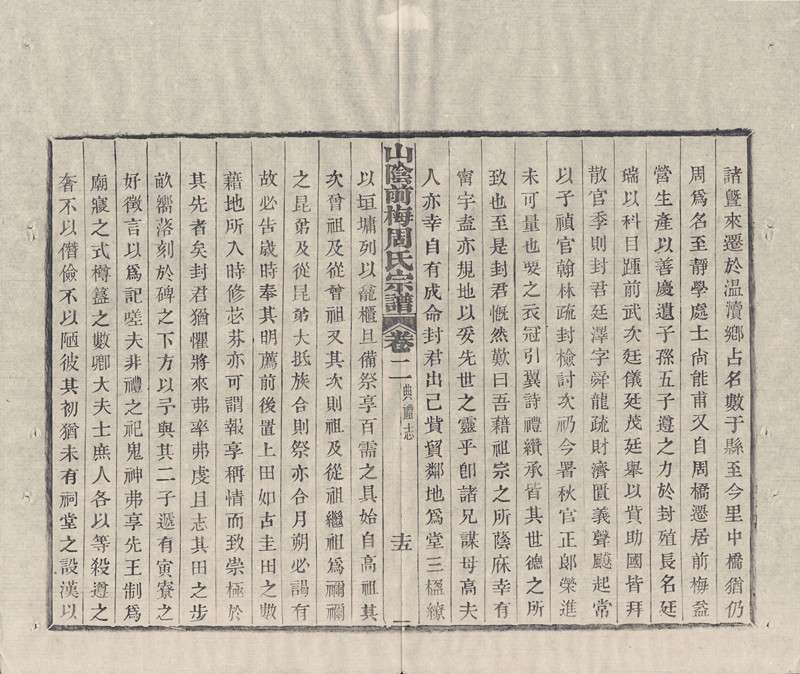 諸暨來遷於温瀆鄉占名數于縣至今里中橋猶仍
周爲名至靜學處士尙能甫又自周橋遷居前梅益
營生產以善慶遺子孫五子遵之力於封殖長名廷
瑞以科目踵前武次廷儀廷茂廷舉以貲助國皆拜
散官季則封君廷澤字舜龍疏財濟匱義聲飈起常
以子禎官翰林疏封檢討次礽今署秋官正郎榮進
未可量也要之衣冠引翼詩禮纘承皆其世德之所
致也至是封君慨然歎曰吾藉祖宗之所蔭庥幸有
甯宇盍亦規地以妥先世之靈乎卽諸兄謀母高夫
人亦幸自有成命封君出己貲貿鄰地爲堂三楹繚
山陰前梅周氏宗譜 卷二 典禮志 十五
以垣墉列以龕櫃且備祭享百需之具始自高祖其
次曾祖及從曾祖又其次則祖及從祖繼祖爲禰禰
之昆弟及從昆弟大抵族合則祭亦合月朔必謁有
故必告歲時奉其明薦前後置上田如古圭田之數
藉地所入時修苾芬亦可謂報享稱情而致崇極於
其先者矣封君猶懼將來弗率弗虔且志其田之步
畝嚮落刻於碑之下方以予與其二子遞有寅寮之
好徵言以爲記嗟夫非禮之祀鬼神弗享先王制爲
廟寢之式樽簋之數卿大夫士庶人各以等殺遵之
奢不以僭儉不以陋彼其初猶未有祠堂之設漢以